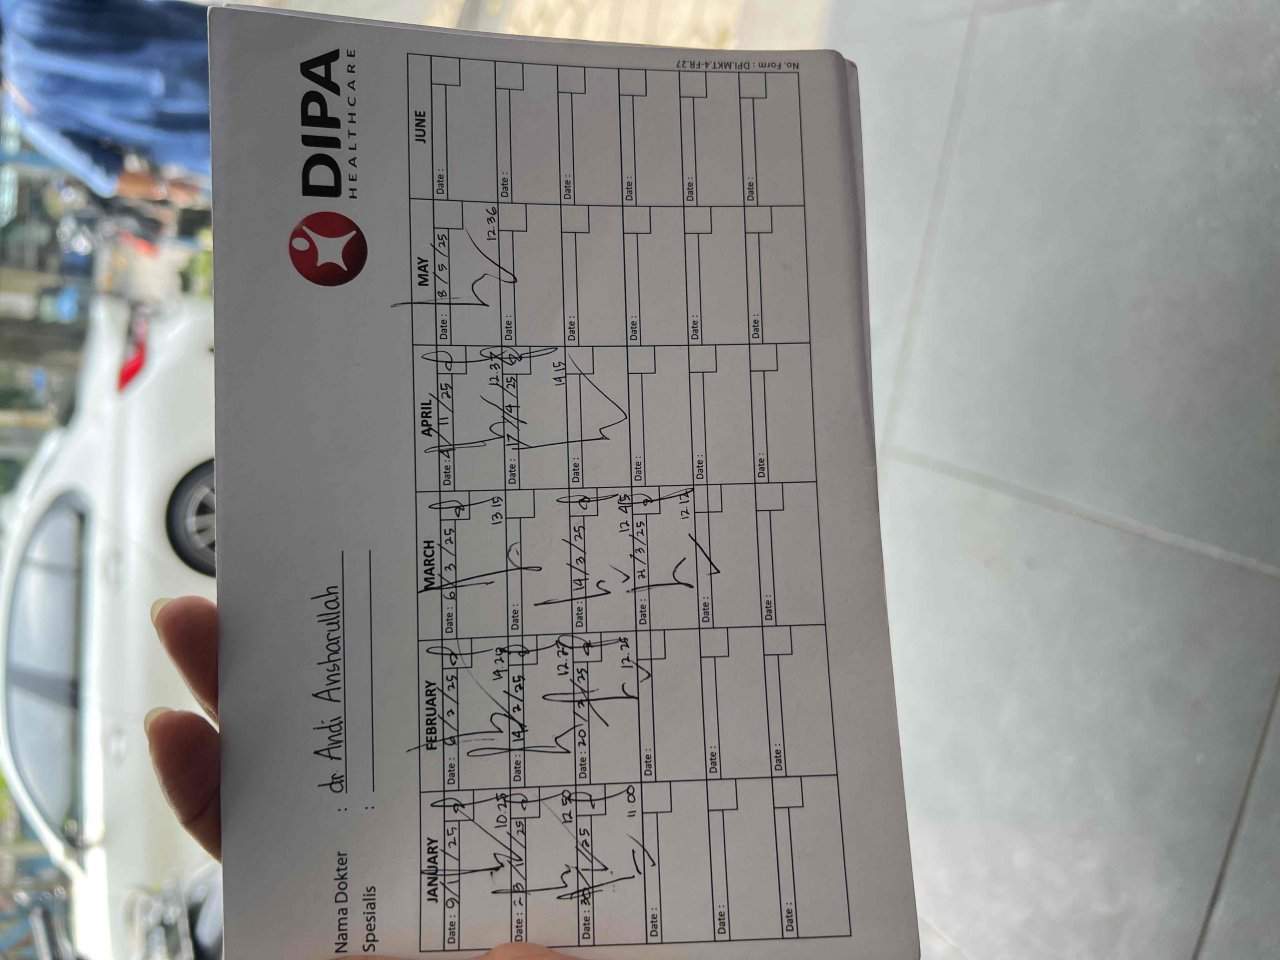 DIPA
HEALTHCARE
Nama Dokter : dr Andi Ansharullah
Spesialis :
JANUARY FEBRUARY MARCH APRIL MAY JUNE
Date : 9/1/25 Date : 6/2/25 Date : 6/3/25 Date : 4/11/25 Date : 8/5/25 Date :
10.25 14.20 13.15 12.37 12.36
Date : 23/1/25 Date : 14/2/25 Date : Date : 17/4/25 Date : Date :
12.50 12.27 14.15
Date : 30/1/25 Date : 20/2/25 Date : 14/3/25 Date : Date : Date :
11.00 12.25 12.45
Date : Date : Date : 21/3/25 Date : Date : Date :
12.12
Date : Date : Date : Date : Date : Date :
Date : Date : Date : Date : Date : Date :
No. Form : DPI.MKT.4-FR.27